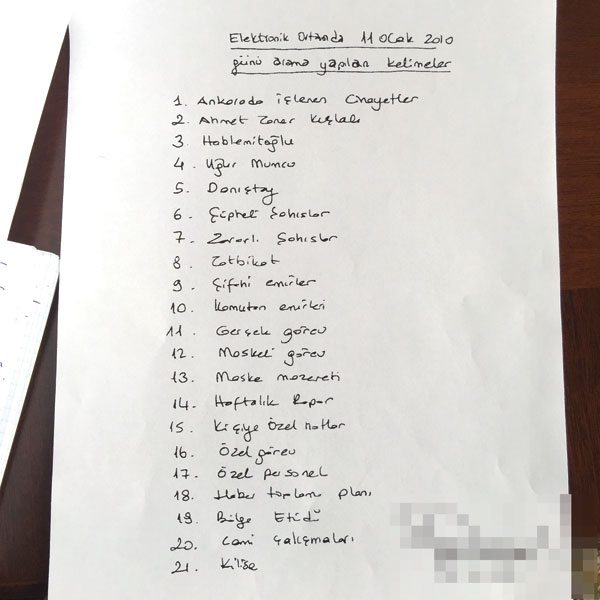 Elektronik Ortamda 11 Ocak 2010
günü arama yapılan kelimeler
1. Ankarada işlenen Cinayetler
2. Ahmet Taner Kışlalı
3. Hablemitoğlu
4. Uğur Mumcu
5. Danıştay
6. Şüpheli Şahıslar
7. Zararlı Şahıslar
8. Tatbikat
9. Şifahi emirler
10. Komutan emirleri
11. Gerçek görev
12. Maskeli görev
13. Maske mazereti
14. Haftalık Rapor
15. Kişiye Özel notlar
16. Özel görev
17. Özel personel
18. Haber toplama planı
19. Bölge Etüdü
20. Cami çalışmaları
21. Kilise